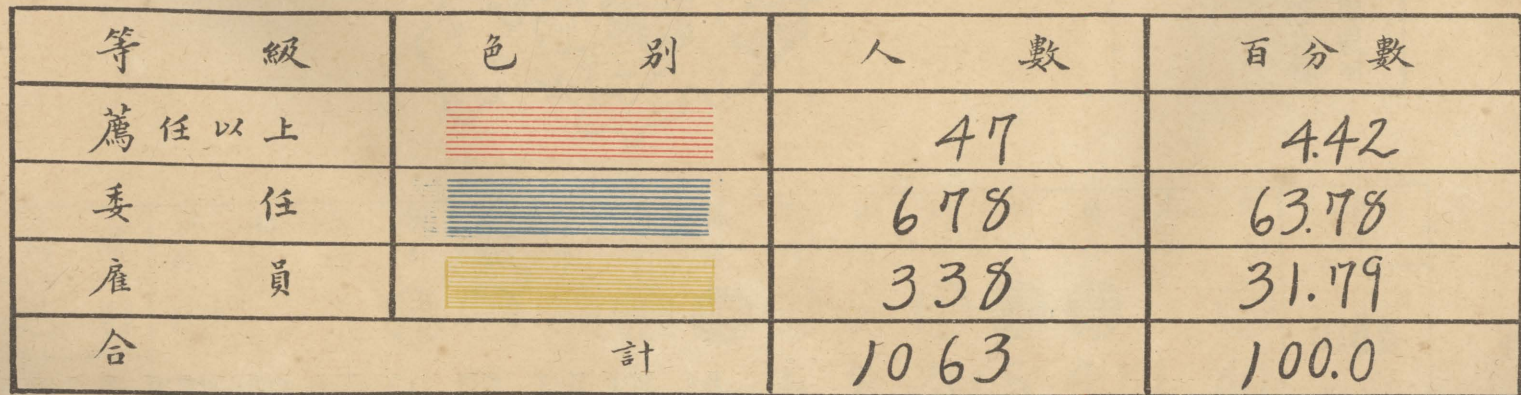 等級 色別 人數 百分數
薦任以上 47 4.42
委任 678 63.78
雇員 338 31.79
合計 1063 100.0